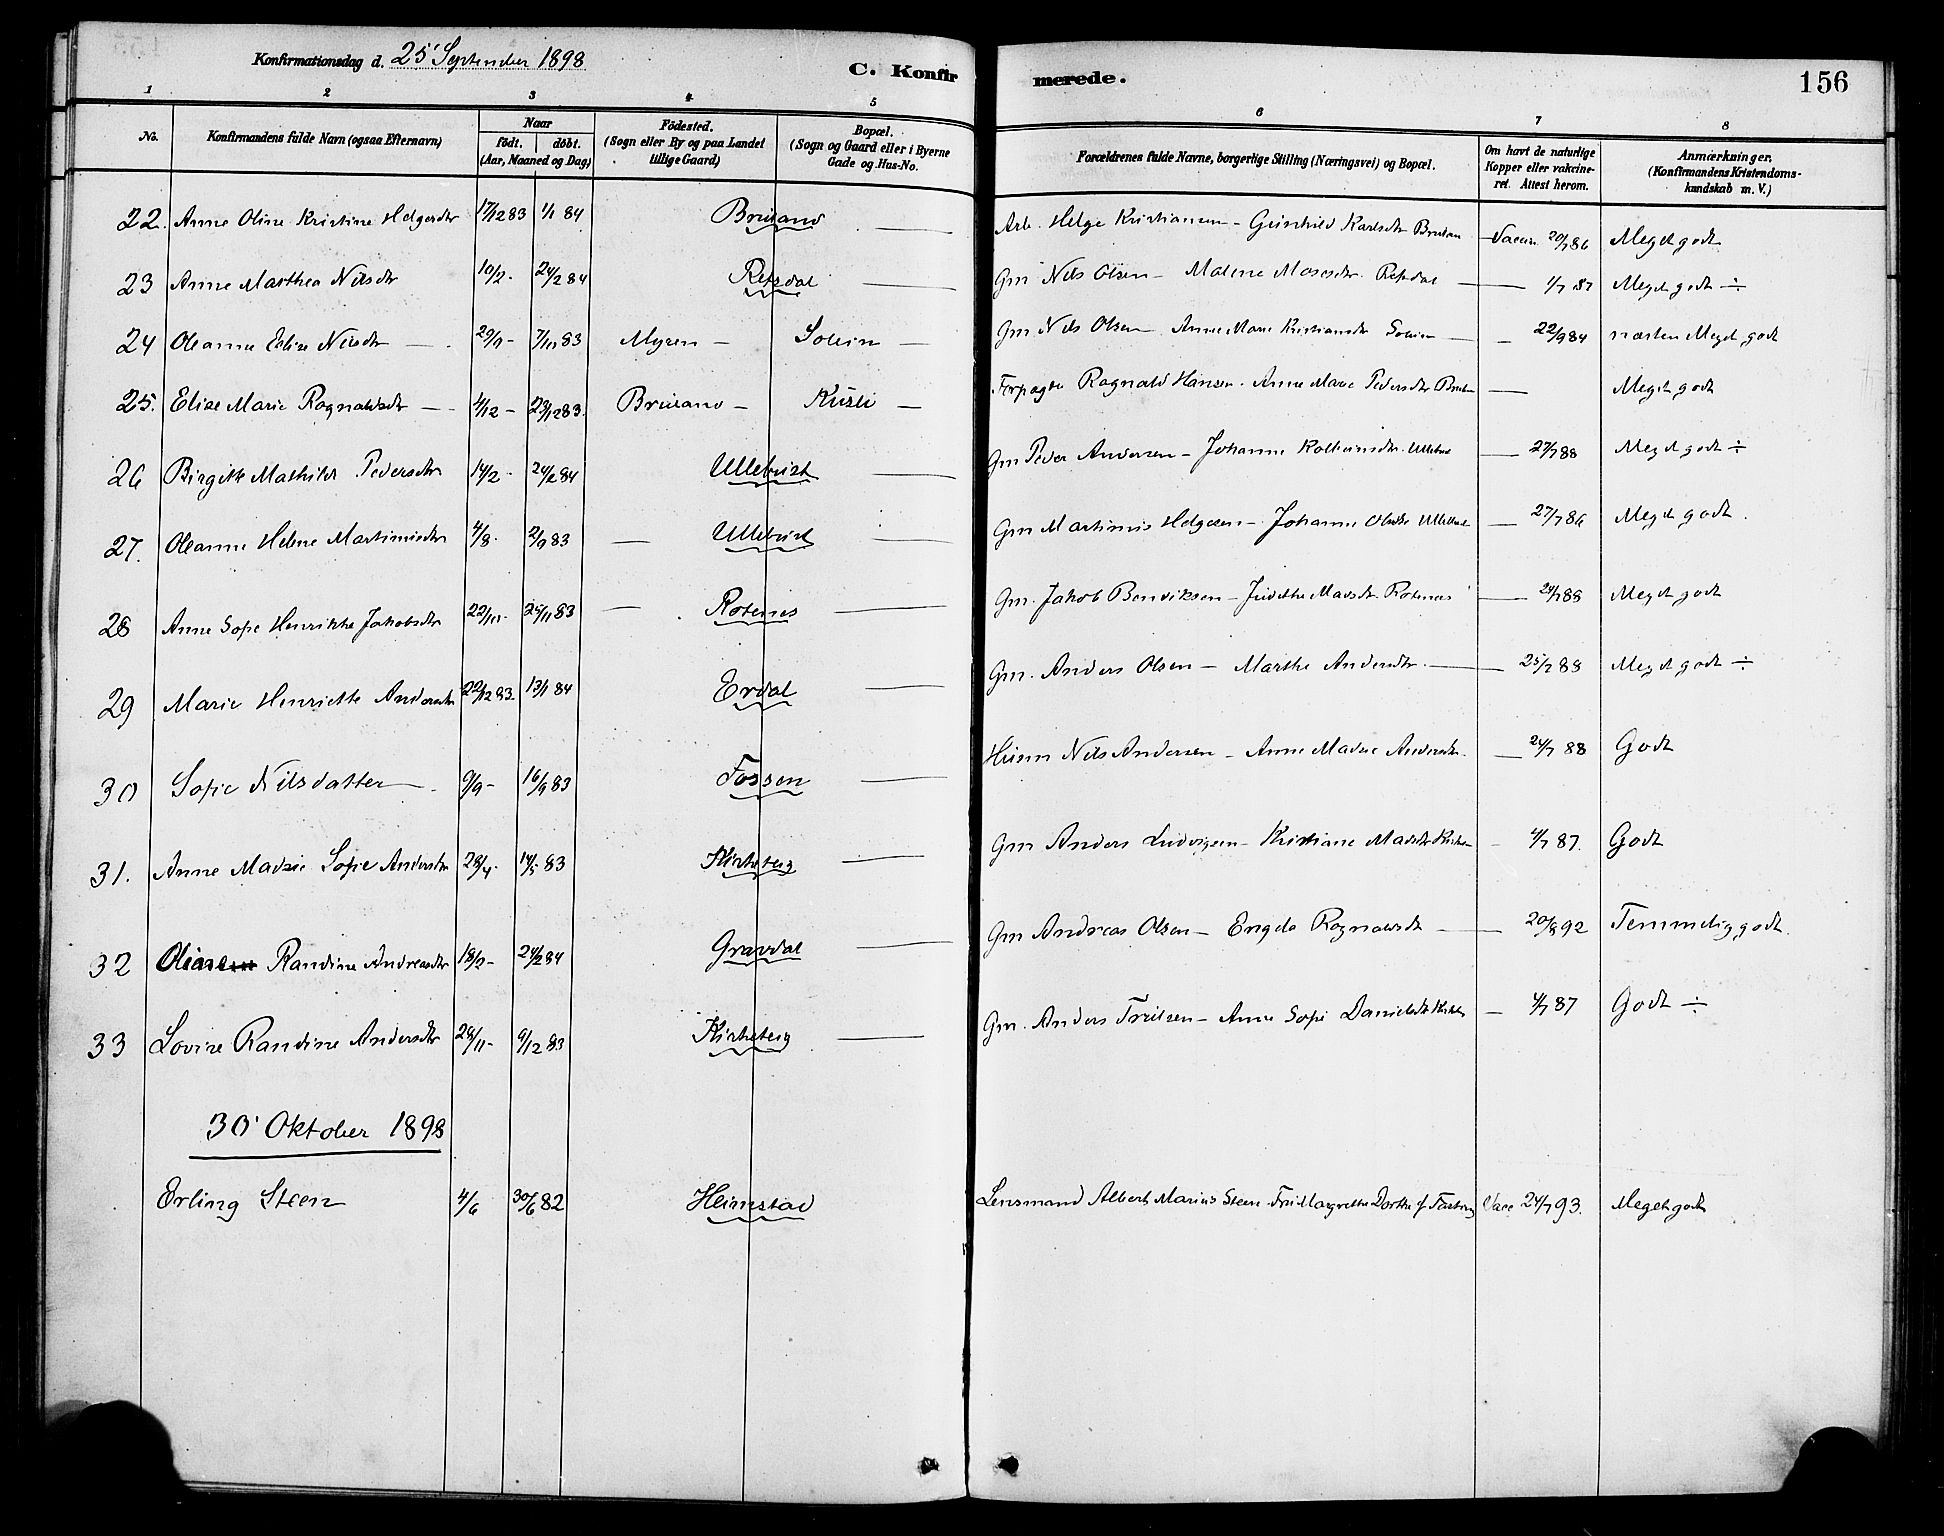 Konfirmationsdag d. 25' September 1898
C. Konfirmerede.
156
1 2 3 4 5 6 7 8
No. Konfirmandens fulde Navn (ogsaa Efternavn) Naar født. døbt. (Aar, Maaned og Dag) Fødested. (Sogn eller By og paa Landet tillige Gaard) Bopæl. (Sogn og Gaard eller i Byerne Gade og Hus-No. Forældrenes fulde Navne, borgerlige Stilling (Næringsvei) og Bopæl. Om havt de naturlige Kopper eller vakcineret. Attest herom. Anmærkninger. (Konfirmandens Kristendomskundskab m. V.)
22. Anne Oline Kristine Helgesdtr 17/12 83 1/1 84 Bruland — Arb. Helge Kristiansen - Gunhild Karlsdtr — Vaccin. 20/7 86 Meget godt
23 Anne Marthea Nilsdtr 10/2 - 24/2 84 Repsdal — Gm Nils Olsen - Malene Mosesdtr. Repsdal — 1/7 87 Meget godt ÷
24 Oleanne Elise Nilsdtr — 29/9 - 7/10 83 Myren — Solein — Gm Nils Olsen - Anne Marie Kristiansdtr — 22/9 84 næsten Meget godt
25. Elise Marie Ragnaldsdtr — 4/12 - 23/12 83. Bruland — Kusli — Forpagter Ragnald Hansen - Anne Marie Pedersdtr — Meget godt
26 Birgitte Mathilde Pedersdtr 14/2 - 24/2 84 Ullebust — Gm Peder Andersen - Johanne — 27/7 88 Meget godt ÷
27. Oleanne Helene Martinusdtr 4/8 - 2/9 83 — Ullebust — Gm Martinus Helgesen - Johanne — 27/7 86 Meget godt.
28 Anne Sofie Henrikke Jakobsdtr 22/10 - 25/11 83 — Rotenes — Gm. Jakob Bendiksen - Judithe Madsdtr Rotenes — 24/7 88 Meget godt
29 Marie Henriette Andersdtr 22/12 83. 13/1 84 Erdal — Gm. Anders Olsen - Marthe Andersdtr. — 25/7 88 Meget godt ÷
30 Sofie Nilsdatter — 9/9 - 16/9 83 Fossen — Husm Nils Andersen - Anne Madsie Andersdtr. — 24/7 88 Godt
31. Anne Madsie Sofie Andersdtr 28/4 - 14/5 83 Kirketeig — Gm Anders Ludvigsen - Kristiane Madsdtr — 4/7 87. Godt
32 Randine Andreasdtr 18/2 - 24/2 84 Gravdal — Gm Andreas Olsen - Engele Ragnaldsdtr — 20/8 92 Temmelig godt.
33 Lovise Randine Andersdtr 28/11 - 9/12 83 Kirketeig — Gm. Anders Trulsen - Anne Sofie Danielsdtr — 4/7 87 Godt ÷
30' Oktober 1898
Erling Steen 4/6 30/6 82 Heimstad Lensmand Albert Marius Steen - Fru Margrethe Dorthe f. Vacc 24/7 93. Meget godt